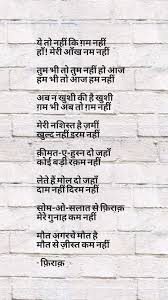 ये तो नहीं कि ग़म नहीं
हाँ! मेरी आँख नम नहीं
तुम भी तो तुम नहीं हो आज
हम भी तो आज हम नहीं
अब न खुशी की है खुशी
ग़म भी अब तो ग़म नहीं
मेरी नशिस्त है ज़मीं
खुल्द नहीं इरम नहीं
क़ीमत-ए-हुस्न दो जहाँ
कोई बड़ी रक़म नहीं
लेते हैं मोल दो जहाँ
दाम नहीं दिरम नहीं
सोम-ओ-सलात से फ़िराक़
मेरे गुनाह कम नहीं
मौत अगरचे मौत है
मौत से ज़ीस्त कम नहीं
- फ़िराक़